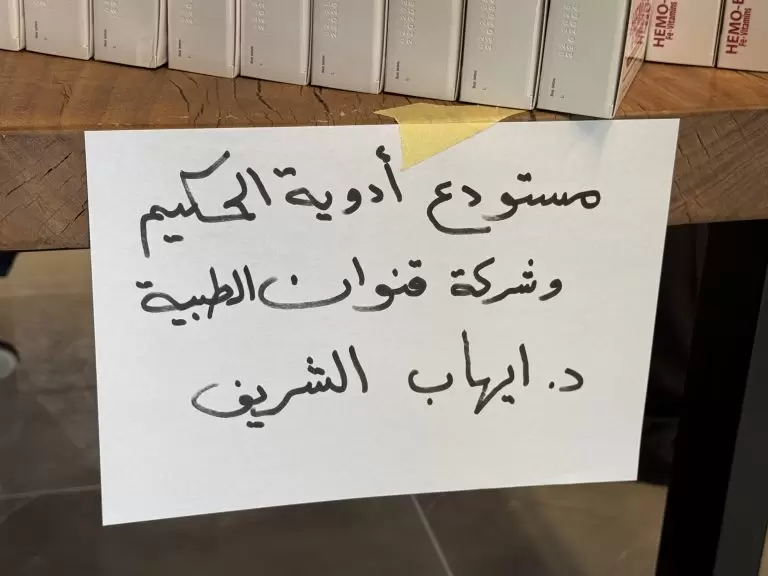 HEMO-
Fe-Vitamins
HEMO-
Fe-Vitamins
مستودع أدوية الحكيم
وشركة قنوان الطبية
د. ايهاب الشريف